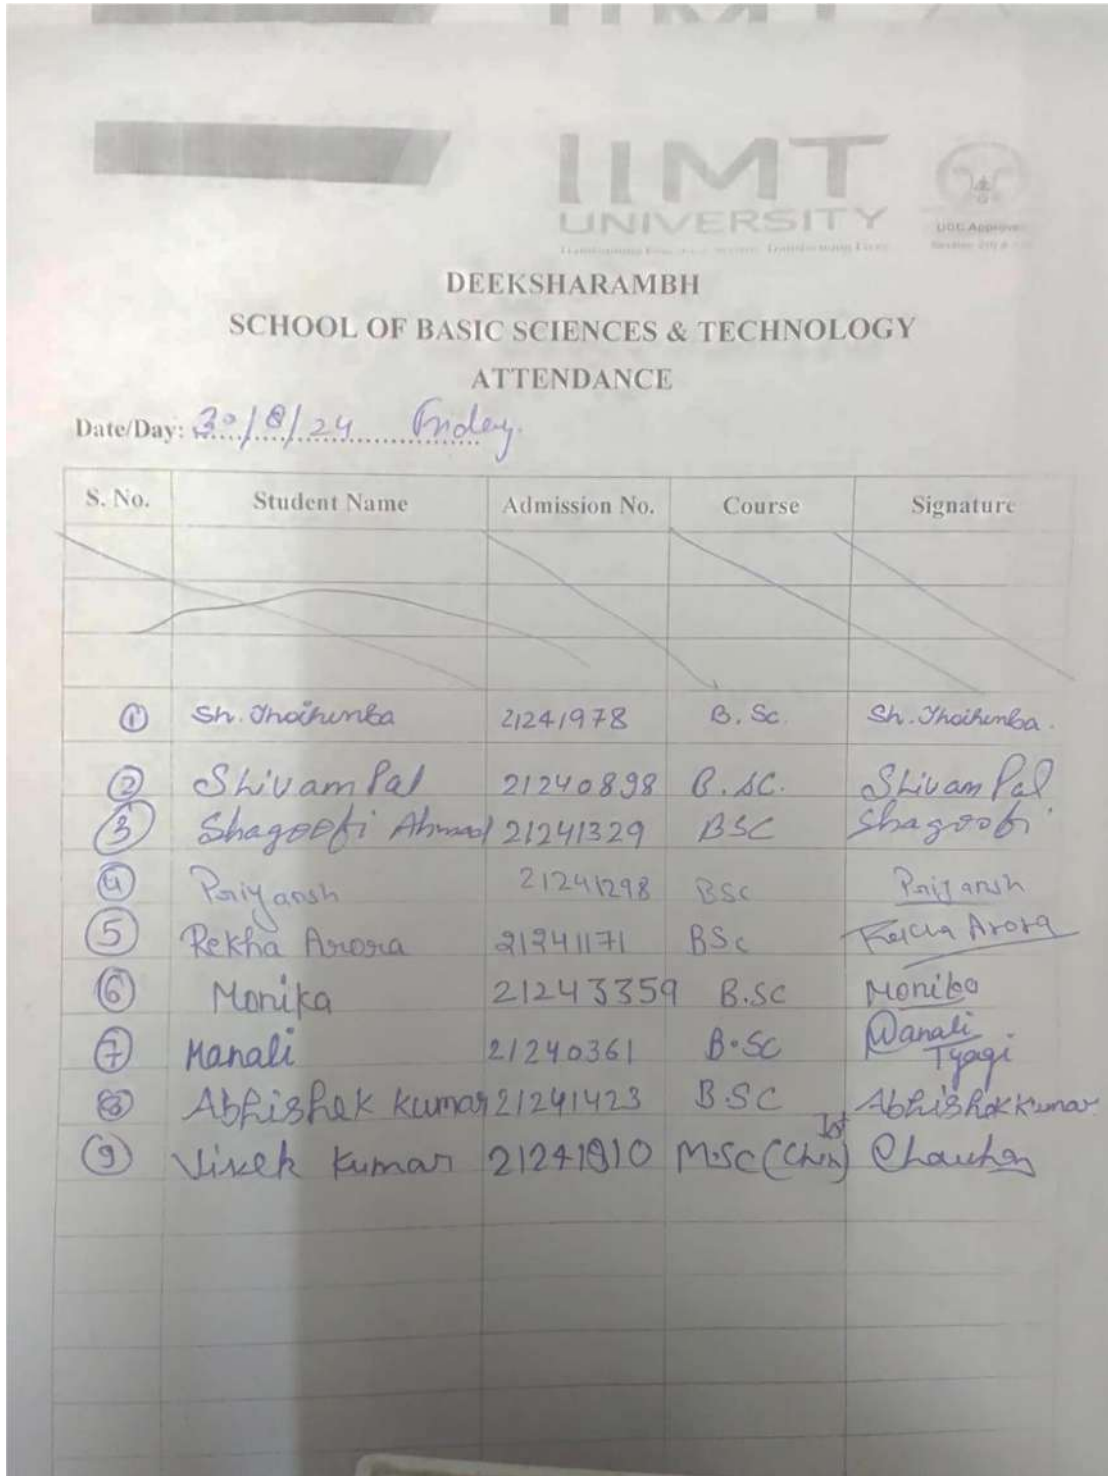 IIMT
UNIVERSITY
UGC Approve
DEEKSHARAMBH
SCHOOL OF BASIC SCIENCES & TECHNOLOGY
ATTENDANCE
Date/Day: 30/8/24 Friday.
S. No. Student Name Admission No. Course Signature
1 Sh. Thoihenba 21241978 B.Sc. Sh. Thoihenba.
2 Shivam Pal 21240898 B.SC. Shivam Pal
3 Shagoofi Ahmad 21241329 BSC Shagoofi
4 Priyansh 21241298 BSc Priyansh
5 Rekha Arora 21241171 BSc Rekha Arora
6 Monika 21243359 B.SC Monika
7 Manali 21240361 B.SC Manali Tyagi
8 Abhishek Kumar 21241423 B.SC Abhishek Kumar
9 Vivek Kumar 21241910 M.SC (Chem) Ist Chauhan